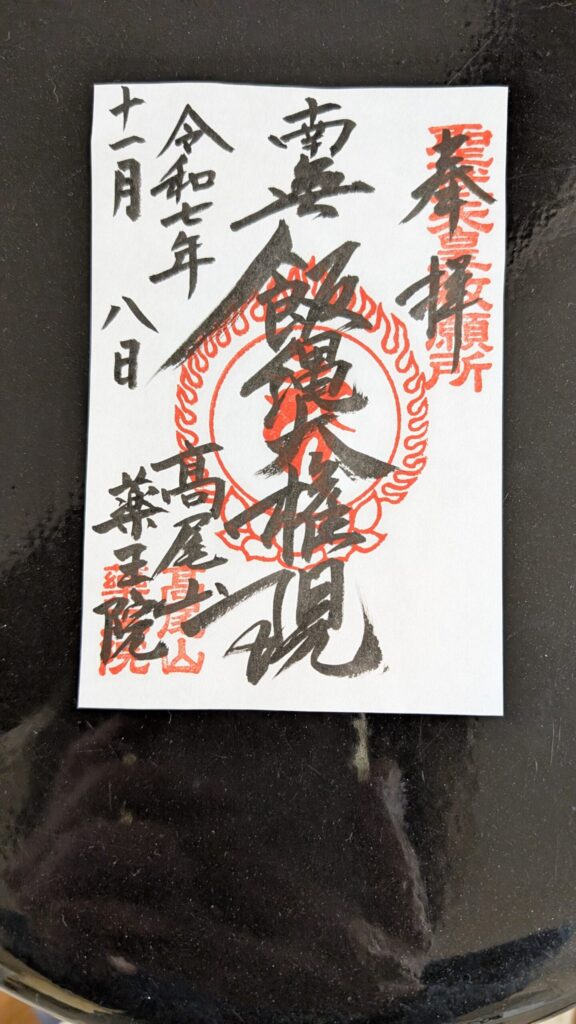 奉拝
聖武天皇敕願所
南無飯縄大権現
令和七年
十一月八日
髙尾山
薬王院
高尾山
藥王院